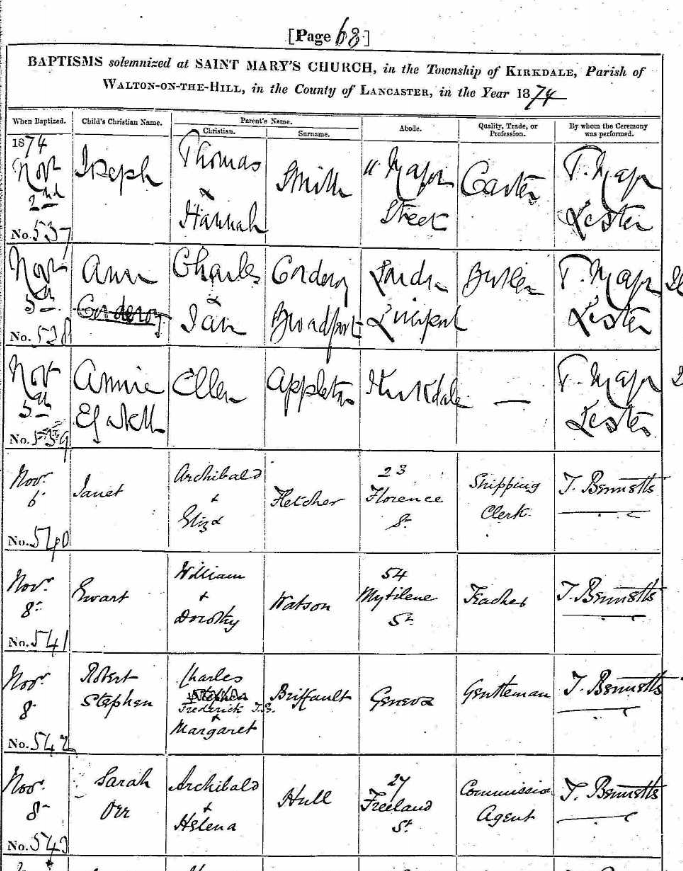 [Page 68]
BAPTISMS solemnized at SAINT MARY'S CHURCH, in the Township of KIRKDALE, Parish of
WALTON-ON-THE-HILL, in the County of LANCASTER, in the Year 1874
When Baptized.
Child's Christian Name.
Parent's Name.
Christian.
Surname.
Abode.
Quality, Trade, or
Profession.
By whom the Ceremony
was performed.
1874
Nov
2nd
No. 537
Joseph
Thomas
&
Hannah
Smith
11 Major
Street
Carter
T. Major
Lester
Nov
5th
No. 538
Ann
Corderoy
Charles
&
Jan
Corderoy
London
Liverpool
Butler
T. Major
Lester
Nov
5th
No. 539
Annie
Ellen
Appleton
Kirkdale
—
T. Major
Lester
Novr
6
No. 540
Janet
Archibald
+
Eliza
Fletcher
23
Florence
St.
Shipping
Clerk
T. Bennetts
Novr
8
No. 541
Ewart
William
+
Dorothy
Watson
54
Mytilene
St.
Teacher
T. Bennetts
Novr
8
No. 542
Robert
Stephen
Charles
Frederick
+
Margaret
Briffault
Geneva
Gentleman
T. Bennetts
Novr
8
No. 543
Sarah
Orr
Archibald
+
Helena
Hull
27
Freeland
St.
Commission
Agent
T. Bennetts